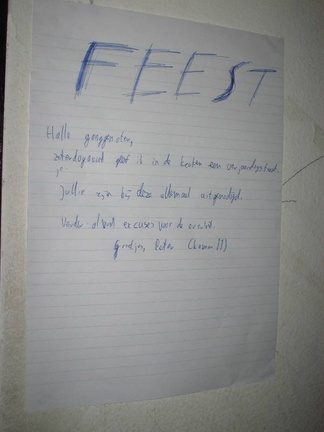 FEEST
Hallo ganggenoten,
zaterdagavond geef ik in de keuken een verjaardagsfeest.
Jullie zijn bij deze allemaal uitgenodigd.
Verder alvast excuses voor de overlast.
Groetjes, Peter (kamer 11)